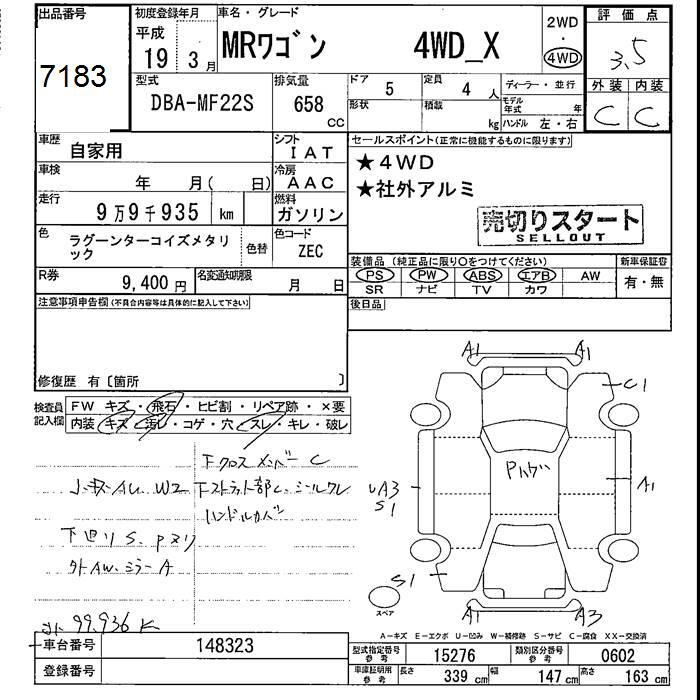 出品番号
7183
初度登録年月
平成
19年 3月
車名・グレード
MRワゴン 4WD_X
2WD
・
4WD
評価点
3.5
外装 内装
C C
型式
DBA-MF22S
排気量
658
CC
ドア 5
定員 4人
ディーラー・並行
形状
積載 kg
モデル年式 年
ハンドル 左・右
車歴 自家用
シフト
IAT
車検 年 月( 日)
冷房
AAC
走行 9万9千935 km
燃料
ガソリン
色 ラグーンターコイズメタリック
色替
色コード
ZEC
R券 9,400円
名変通知期限 月 日
セールスポイント(正常に機能するものに限ります)
★4WD
★社外アルミ
売切りスタート
SELLOUT
装備品(純正品に限り○をつけてください)
新車保証書
PS PW ABS エアB AW
有・無
SR ナビ TV カワ
後日品
注意事項申告欄(不具合内容等は具体的に記入して下さい)
修復歴 有〔箇所 〕
検査員記入欄
FW キズ・飛石・ヒビ割・リペア跡・×要
内装 キズ・汚レ・コゲ・穴・スレ・キレ・破レ
下クロスメンバーC
W2
ハンドルカバー
下廻りS.Pヌリ
外AW.ミラーA
99,936K
A1 A1
C1
UA3
S1
A1
S1
A1 A3
スペア
A-キズ E-エクボ U-凹み W-補修跡 S-サビ C-腐食 XX-交換済
車台番号 148323
登録番号
型式指定番号 参考 15276
類別区分番号 参考 0602
車庫証明用 参考 長さ 339cm 幅 147cm 高さ 163cm